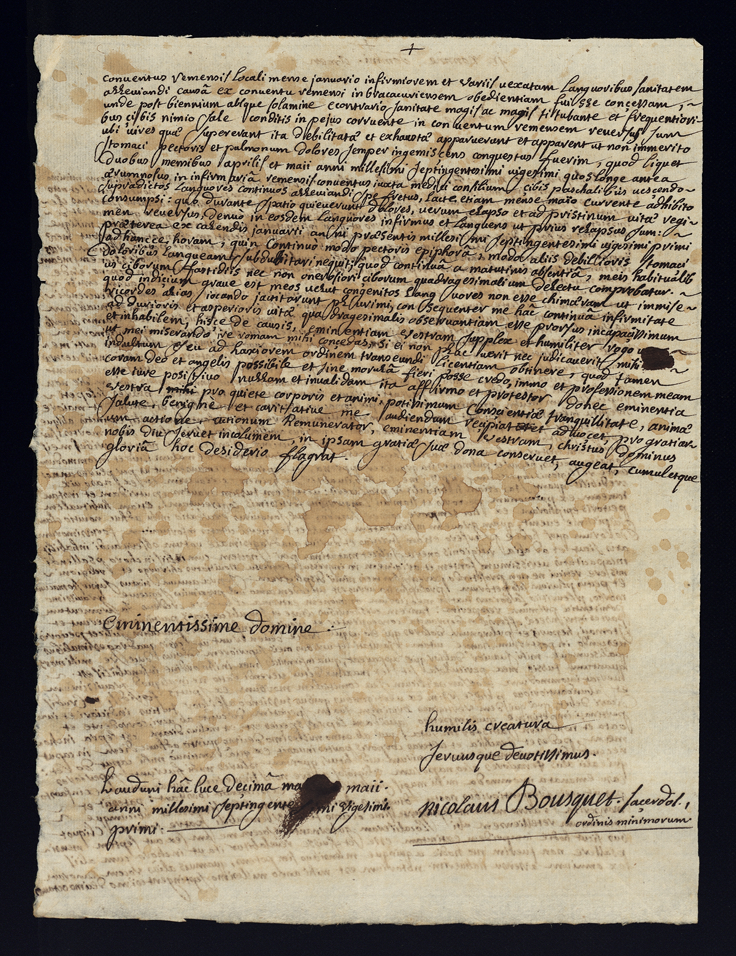 conventus remensis locali mense januario infirmiorem et variis uexatam languoribus sanitatem
alleviandi causâ ex conventu remensi in bracacuriensem obedientiam fuisse concessam,
unde post biennium absque solamine econtrario sanitate magis ac magis titubante et frequentiori
bus cibis nimio sale conditis in pejus corruente in conventum remensem reversus sum
ubi vires quæ supererant ita debilitatæ et exhaustæ apparuerunt et apparent ut non immerito
stomaci pectoris et palmonum dolores semper ingemiscens conquestus fuerim, quod liquet
duobus mensibus aprilis et maii anni millesimi septingentesimi vigesimi quos longe antea
ærumnosus in infirmariâ remensis conventus juxta medici consilium cibis paschalibus vescendo
supradictos languores continuos alleviandi spe fretus, lacte etiam mense maio currente adhibito
consumpsi: quo durante spatio quieuerunt dolores, verum elapso et ad pristinum vitæ regi-
men reversus, denuo in eosdem languores infirmus et languens ut prius relapsus sum:
præterea ex calendis januarii anni præsentis millesimi septingentesimi vigesimi primi
ad hancce horam, quin continuo modo pectoris epiphorâ, modo aliis debilioris stomaci
doloribus langueam subdubitari nequit; quod continuâ a matutinis absentiâ, meis habitualib
us ciborum fastidiis nec non onerosiori ciborum quadragesimalium delectu comprobatur
quod indicium grave est meos velut congenitos languores non esse chimæram ut immise-
ricordes alias jocando jactitarunt plurimi, consequenter me hac continuâ infirmitate
ad durioris et asperioris vitæ quadragesimalis observantiam esse prorsus incapacissimum
et inhabilem: hisce de causis, eminentiam vestram supplex et humiliter rogo
ut mei miserando vel romam mihi concedas, si ei non placuerit nec judicaverit mihi
indultum seu ad laxiorem ordinem transeundi licentiam obtinere, quod tamen
coram deo et angelis possibile et sine morulâ fieri posse credo, immo et professionem meam
esse jure positivo nullam et invalidam ita affirmo et protestor, donec eminentia
vestra mihi pro quiete corporis et animi, potissimum conscientiæ tranquilitate, animæ
salute, benigne et caritative me audiendum recipiat et advocet, pro gratiar-
um actione, rationum remunerator, eminentiam vestram, christus dominus
nobis diu servet incolumem, in ipsam gratiæ suæ dona conservet, augeat, cumuletque
gloriâ hoc desiderio flagrat.
eminentissime domine
humilis creatura
servusque devotissimus.
Lauduni hâc luce decimâ maii
anni millesimi septingentesimi vigesimi
primi
nicolaus Bousquet. sacerdos,
ordinis minimorum